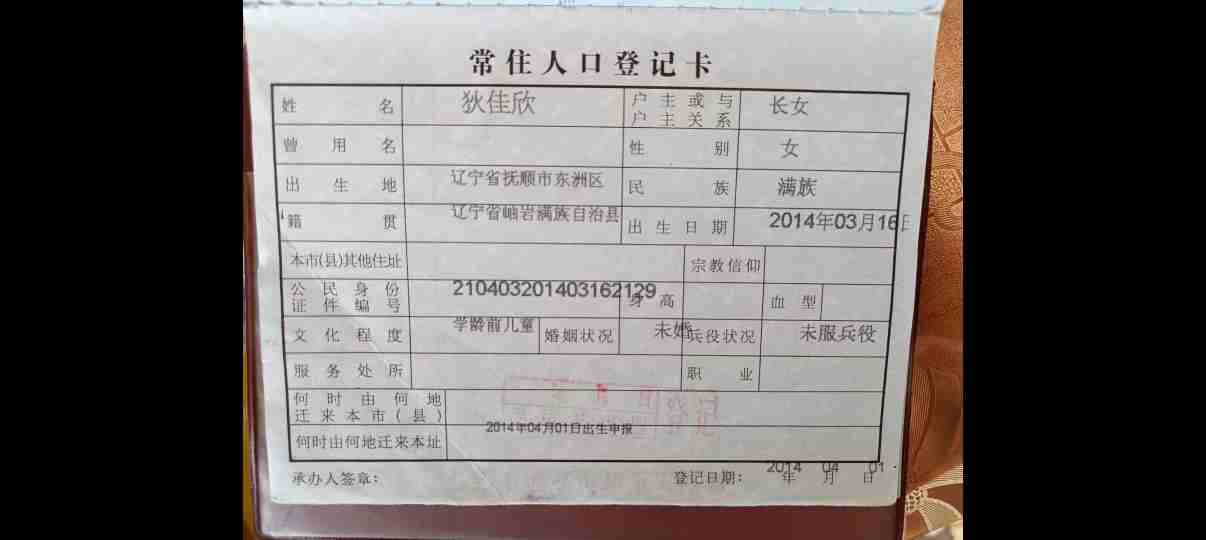 常住人口登记卡
姓名 狄佳欣 户主或与户主关系 长女
曾用名 性别 女
出生地 辽宁省抚顺市东洲区 民族 满族
籍贯 辽宁省岫岩满族自治县 出生日期 2014年03月16日
本市(县)其他住址 宗教信仰
公民身份证件编号 210403201403162129 身高 血型
文化程度 学龄前儿童 婚姻状况 未婚 兵役状况 未服兵役
服务处所 职业
何时由何地迁来本市(县)
何时由何地迁来本址 2014年04月01日出生申报
承办人签章: 登记日期: 2014年04月01日